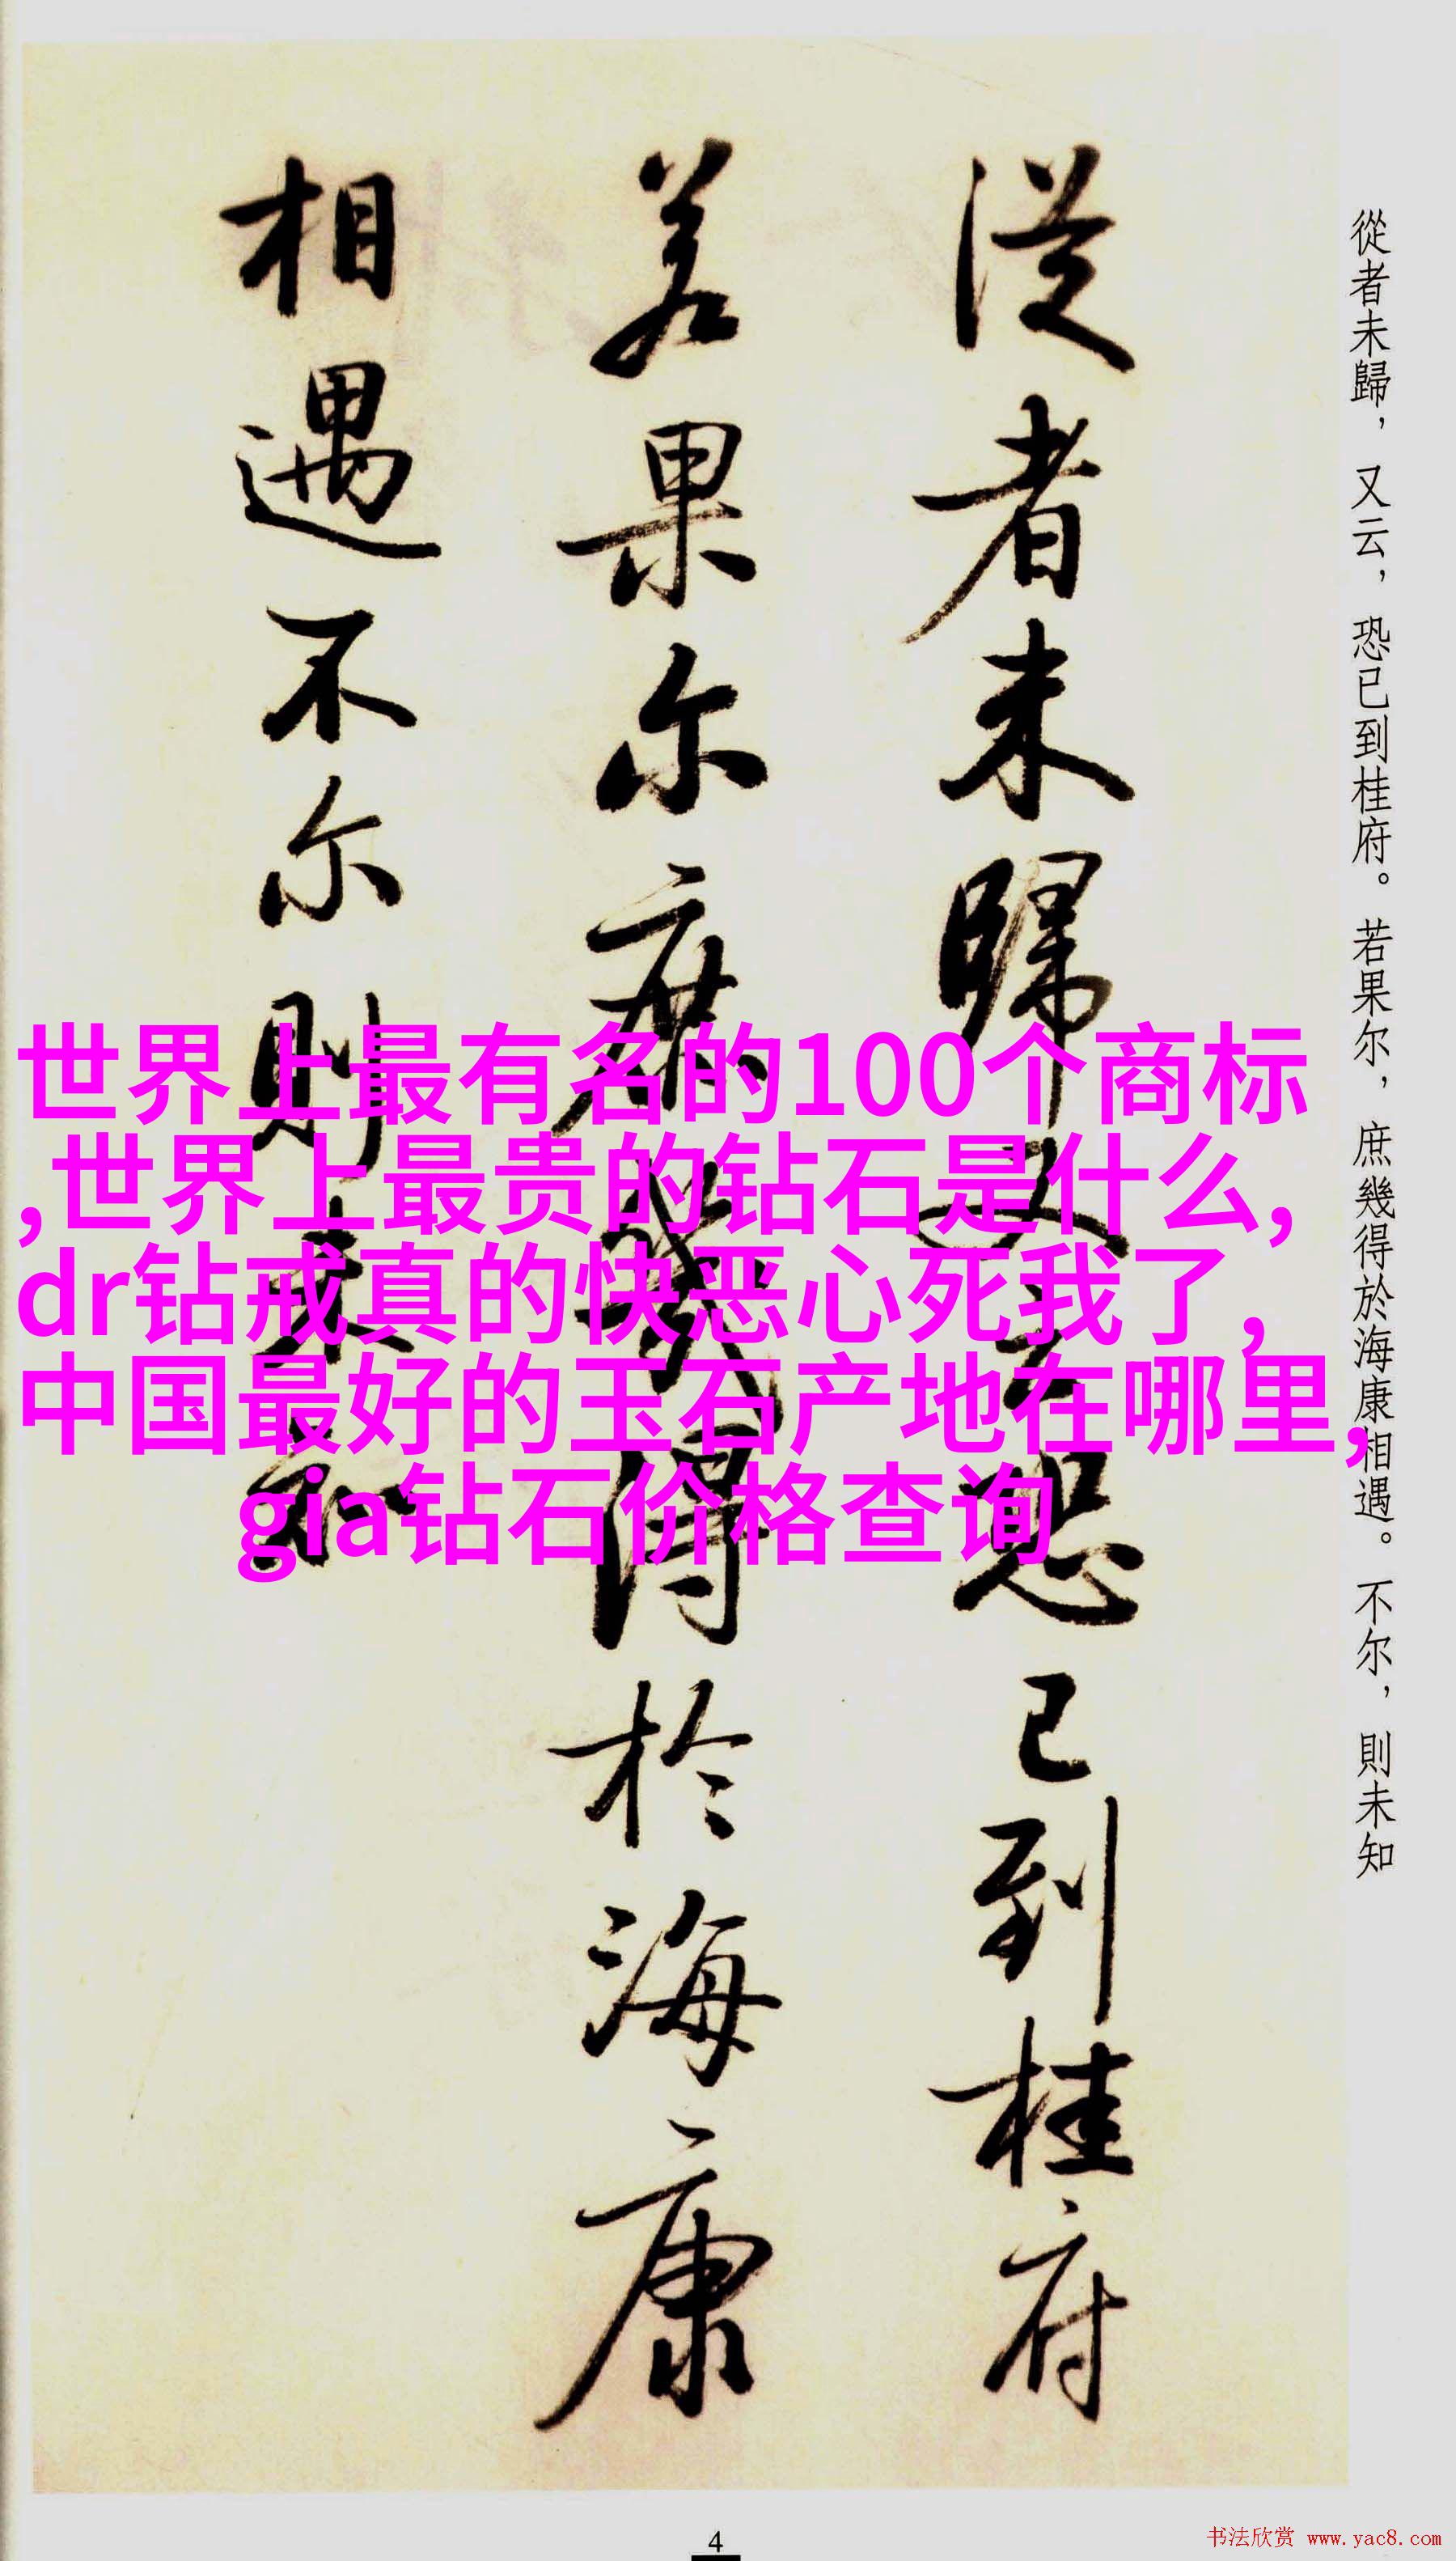 從者未歸，又云，恐已到桂府。若果尔，庶幾得於海康相遇。不尔，則未知
從者未歸又云恐已到桂府
若果尔庶幾得於海康
相遇不尔則未知
世界上最有名的100个商标
,世界上最贵的钻石是什么,
dr钻戒真的快恶心死我了,
中国最好的玉石产地在哪里,
gia钻石价格查询
4
书法欣赏 www.yac8.com